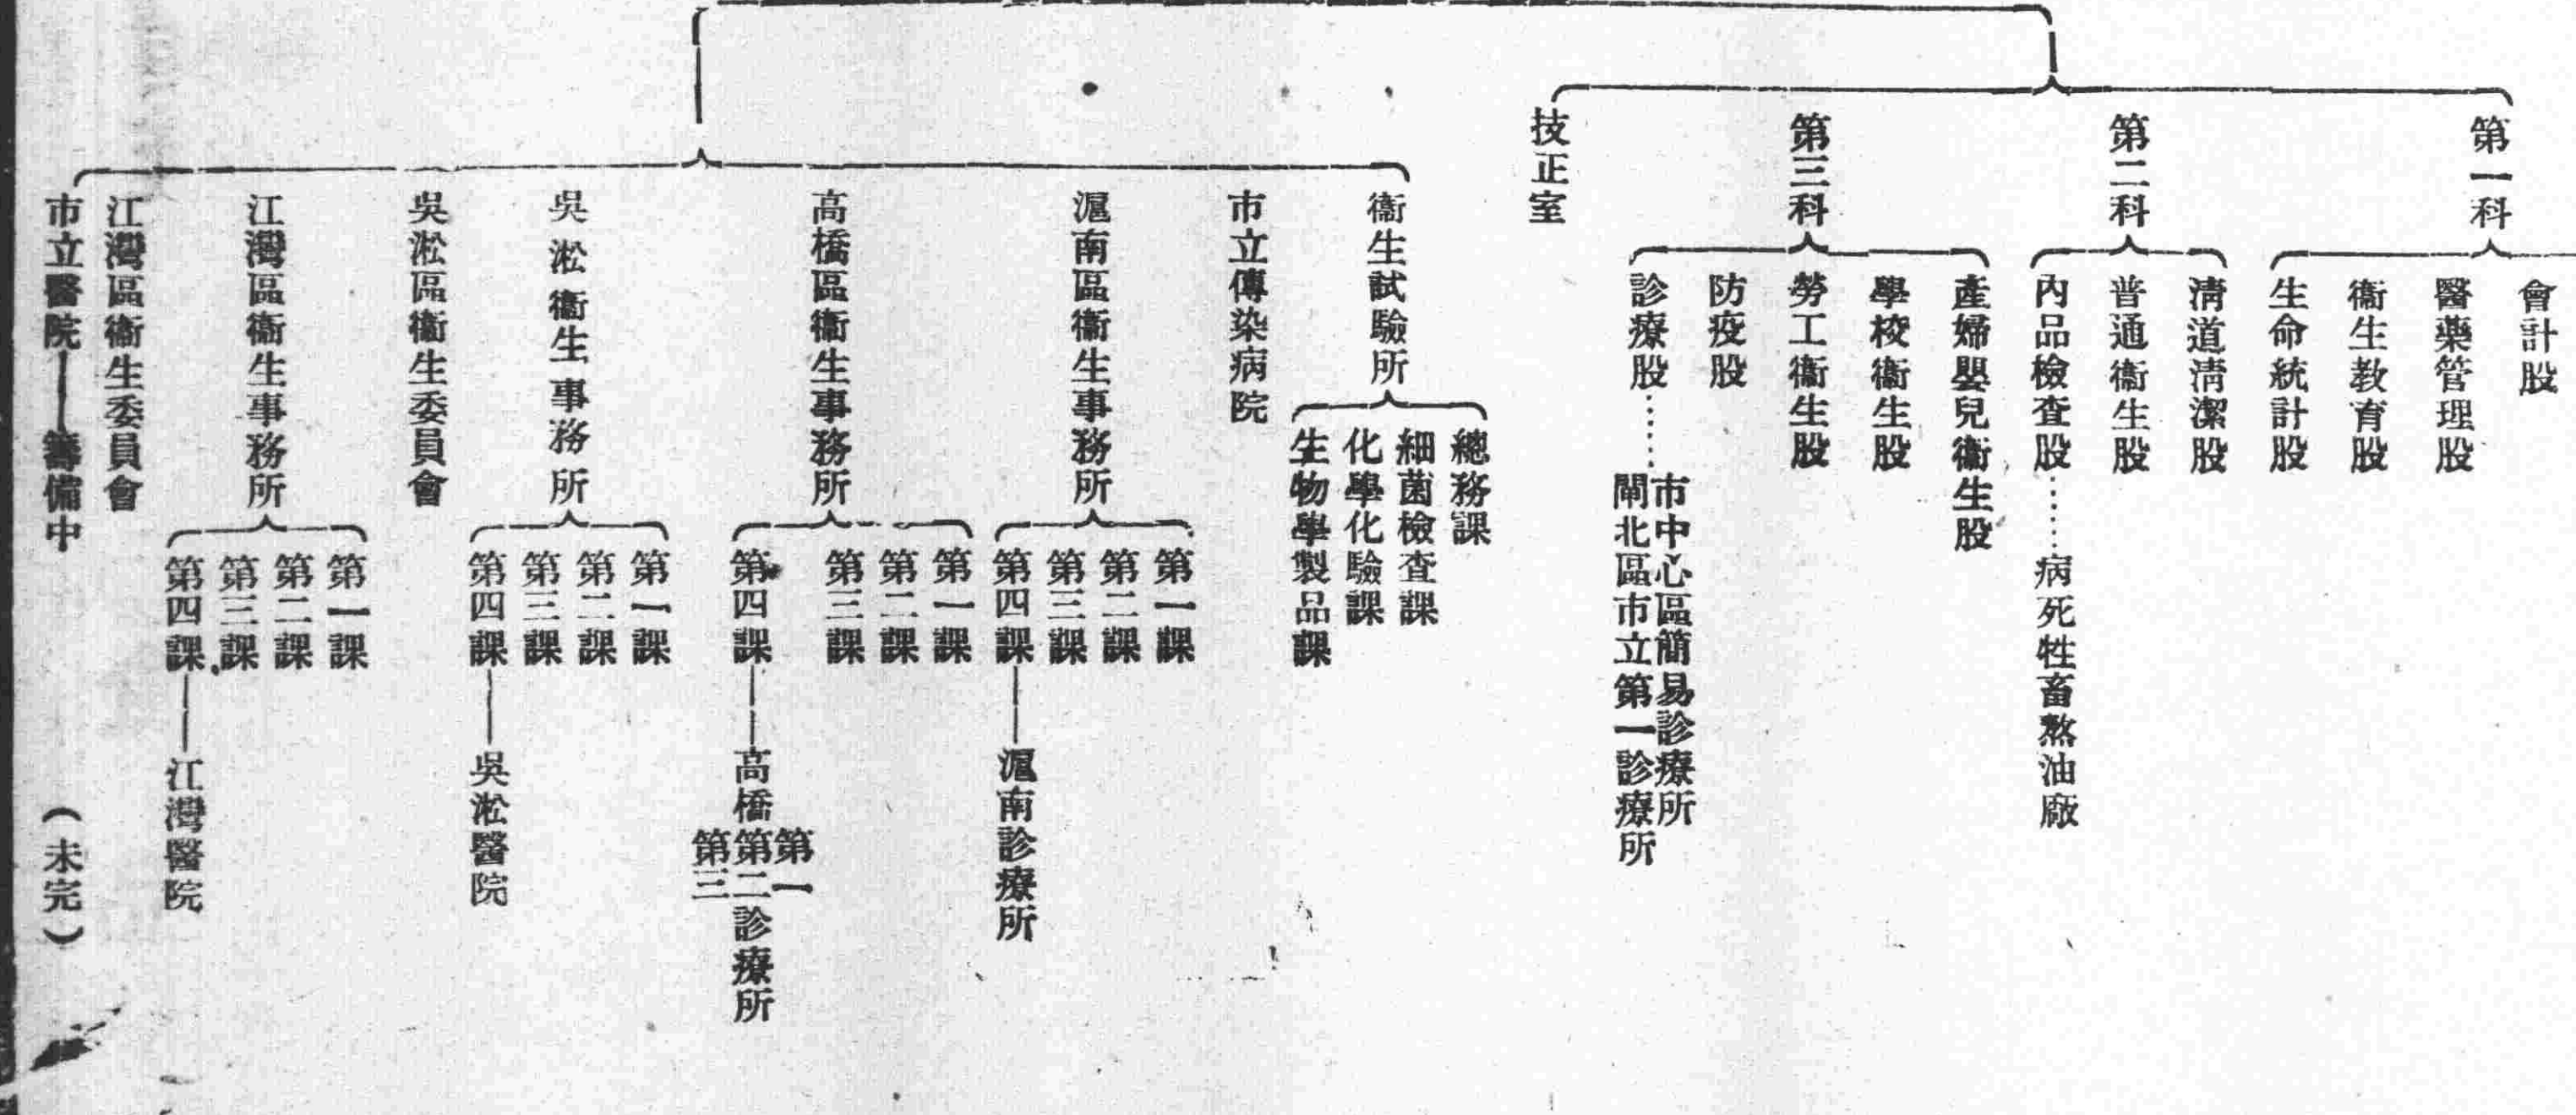 第一科
會計股
醫藥管理股
衞生教育股
生命統計股
第二科
清道清潔股
普通衞生股
內品檢查股……病死牲畜熬油廠
第三科
產婦嬰兒衞生股
學校衞生股
勞工衞生股
防疫股
診療股……
市中心區簡易診療所
閘北區市立第一診療所
技正室
衞生試驗所
總務課
細菌檢查課
化學化驗課
生物學製品課
市立傳染病院
滬南區衞生事務所
第一課
第二課
第三課
第四課——滬南診療所
高橋區衞生事務所
第一課
第二課
第三課
第四課——高橋
第一
第二
第三
診療所
吳淞衞生事務所
第一課
第二課
第三課
第四課——吳淞醫院
吳淞區衞生委員會
江灣區衞生事務所
第一課
第二課
第三課
第四課——江灣醫院
江灣區衞生委員會
市立醫院——籌備中
(未完)